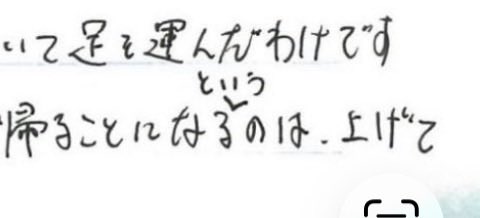 いて足を運んだわけです
という
帰ることになるのは、上げて